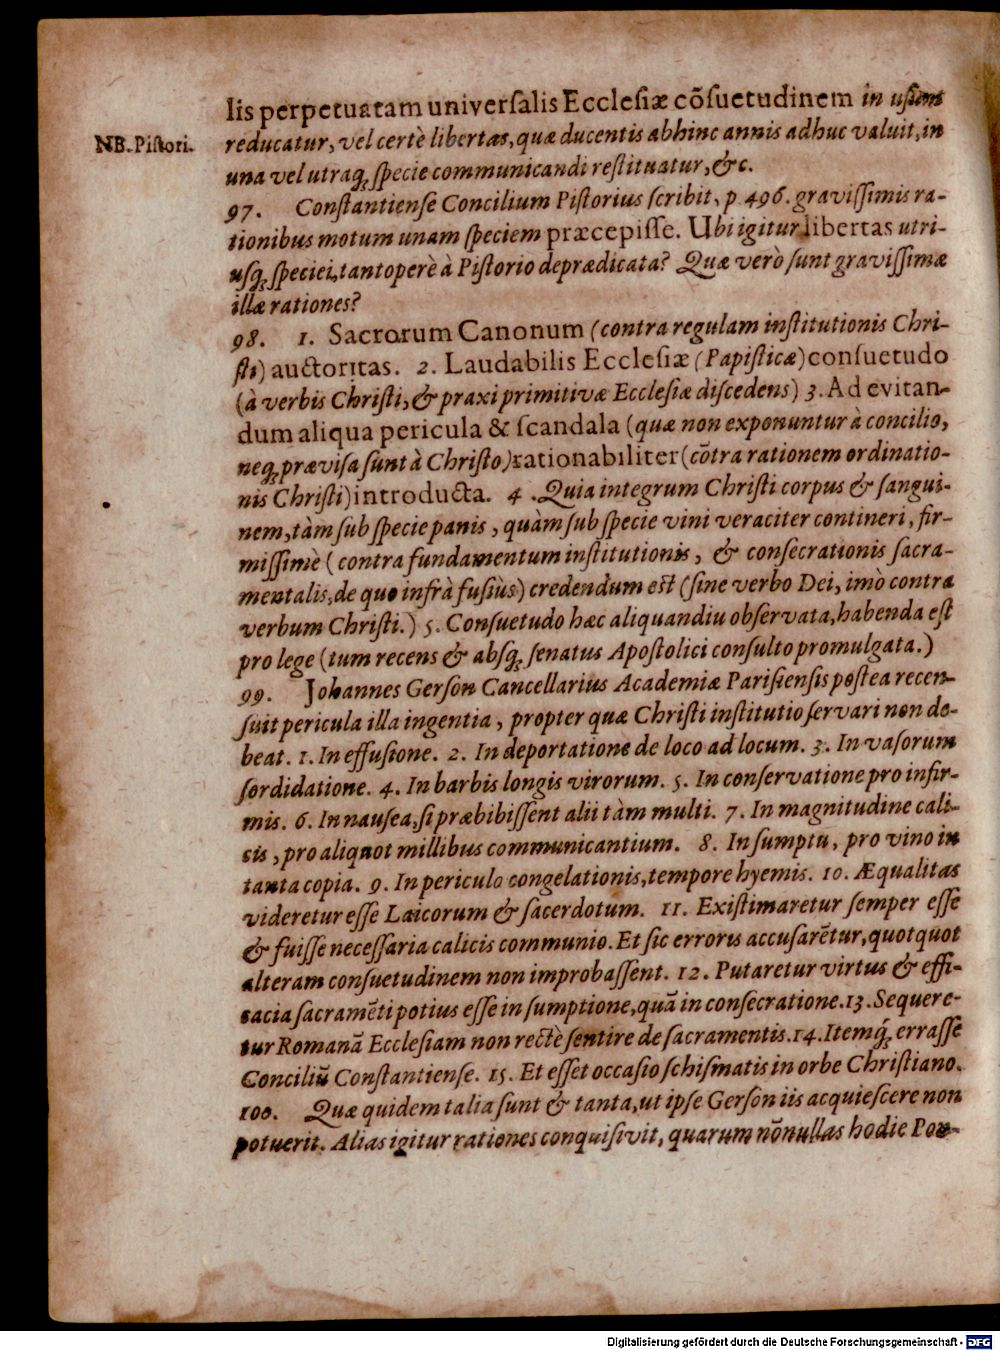 lis perpetuatam universalis Ecclesiæ cõsuetudinem in usum
NB. Pistori.
reducatur, vel certè libertas, quæ ducentis abhinc annis adhuc valuit, in
una vel utraq; specie communicandi restituatur, &c.
97. Constantiense Concilium Pistorius scribit, p 496. gravissimis ra-
tionibus motum unam speciem præcepisse. Ubi igitur libertas utri-
usq; speciei, tantoperè à Pistorio deprædicata? Quæ verò sunt gravissimæ
illæ rationes?
98. 1. Sacrorum Canonum (contra regulam institutionis Chri-
sti) auctoritas. 2. Laudabilis Ecclesiæ (Papisticæ) consuetudo
(à verbis Christi, & praxi primitivæ Ecclesiæ discedens) 3. Ad evitan-
dum aliqua pericula & scandala (quæ non exponuntur à concilio,
neq; prævisa sunt à Christo) rationabiliter (cõtra rationem ordinatio-
nis Christi) introducta. 4. Quia integrum Christi corpus & sangui-
nem, tàm sub specie panis, quàm sub specie vini veraciter contineri, fir-
missimè (contra fundamentum institutionis, & consecrationis sacra-
mentalis, de quo infrà fusiùs) credendum est (sine verbo Dei, imò contra
verbum Christi.) 5. Consuetudo hæc aliquandiu observata, habenda est
pro lege (tum recens & absq; senatus Apostolici consulto promulgata.)
99. Johannes Gerson Cancellarius Academiæ Parisiensis postea recen-
suit pericula illa ingentia, propter quæ Christi institutio servari non de-
beat. 1. In effusione. 2. In deportatione de loco ad locum. 3. In vasorum
sordidatione. 4. In barbis longis virorum. 5. In conservatione pro infir-
mis. 6. In nausea, si præbibissent alii tàm multi. 7. In magnitudine cali-
cis, pro aliquot millibus communicantium. 8. In sumptu, pro vino in
tanta copia. 9. In periculo congelationis, tempore hyemis. 10. Æqualitas
videretur esse Laicorum & sacerdotum. 11. Existimaretur semper esse
& fuisse necessaria calicis communio. Et sic erroris accusarẽtur, quotquot
alteram consuetudinem non improbassent. 12. Putaretur virtus & effi-
cacia sacramẽti potius esse in sumptione, quã in consecratione. 13. Sequere-
tur Romanã Ecclesiam non rectè sentire de sacramentis. 14. Itemq́; errasse
Conciliũ Constantiense. 15. Et esset occasio schismatis in orbe Christiano.
100. Quæ quidem talia sunt & tanta, ut ipse Gerson iis acquiescere non
potuerit. Alias igitur rationes conquisivit, quarum nõnullas hodie Pon-
Digitalisierung gefördert durch die Deutsche Forschungsgemeinschaft - DFG